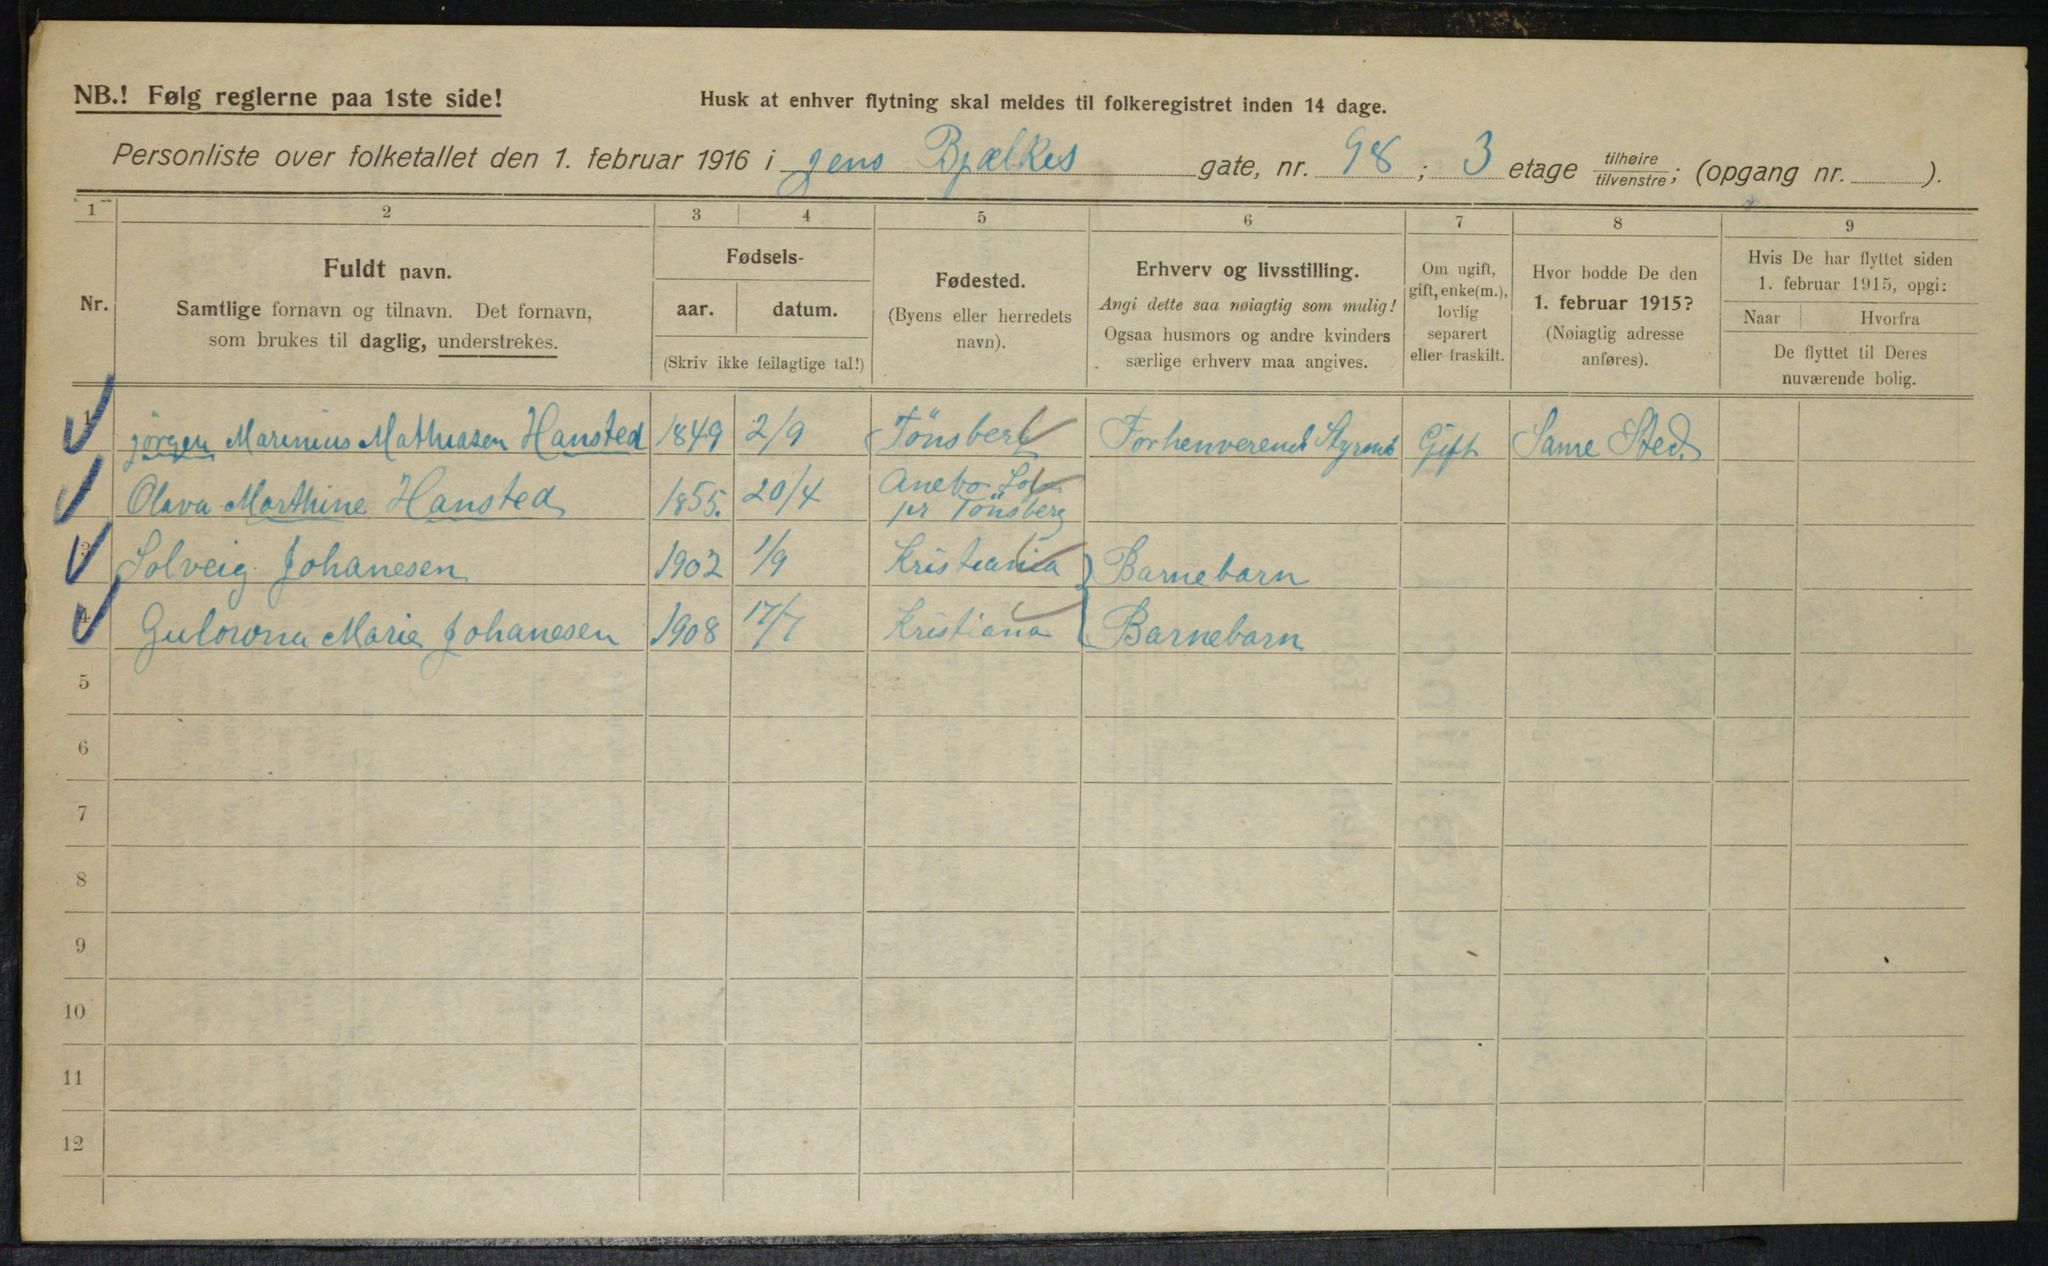 NB.! Følg reglerne paa 1ste side!
Husk at enhver flytning skal meldes til folkeregistret inden 14 dage.
Personliste over folketallet den 1. februar 1916 i Jens Bjælkes gate, nr. 98 ; 3 etage tilhøire tilvenstre; (opgang nr. ).
1 2 3 4 5 6 7 8 9
Nr.
Fuldt navn.
Samtlige fornavn og tilnavn. Det fornavn,
som brukes til daglig, understrekes.
Fødsels-
aar. datum.
(Skriv ikke feilagtige tal!)
Fødested.
(Byens eller herredets
navn).
Erhverv og livsstilling.
Angi dette saa nøiagtig som mulig!
Ogsaa husmors og andre kvinders
særlige erhverv maa angives.
Om ugift,
gift, enke(m.),
lovlig
separert
eller fraskilt.
Hvor bodde De den
1. februar 1915?
(Nøiagtig adresse
anføres).
Hvis De har flyttet siden
1. februar 1915, opgi:
Naar Hvorfra
De flyttet til Deres
nuværende bolig.
1 Jörgen Marinius Mathiasen Hansted 1849 2/9 Tönsberg Forhenverend Gift Same Sted
Olava Marthine Hansted 1855. 20/4 Anebo
pr Tönsberg
3 Solveig Johanesen 1902 1/9 Kristiania Barnebarn
4 Marie Johanesen 1908 17/7 Kristiana Barnebarn
5
6
7
8
9
10
11
12